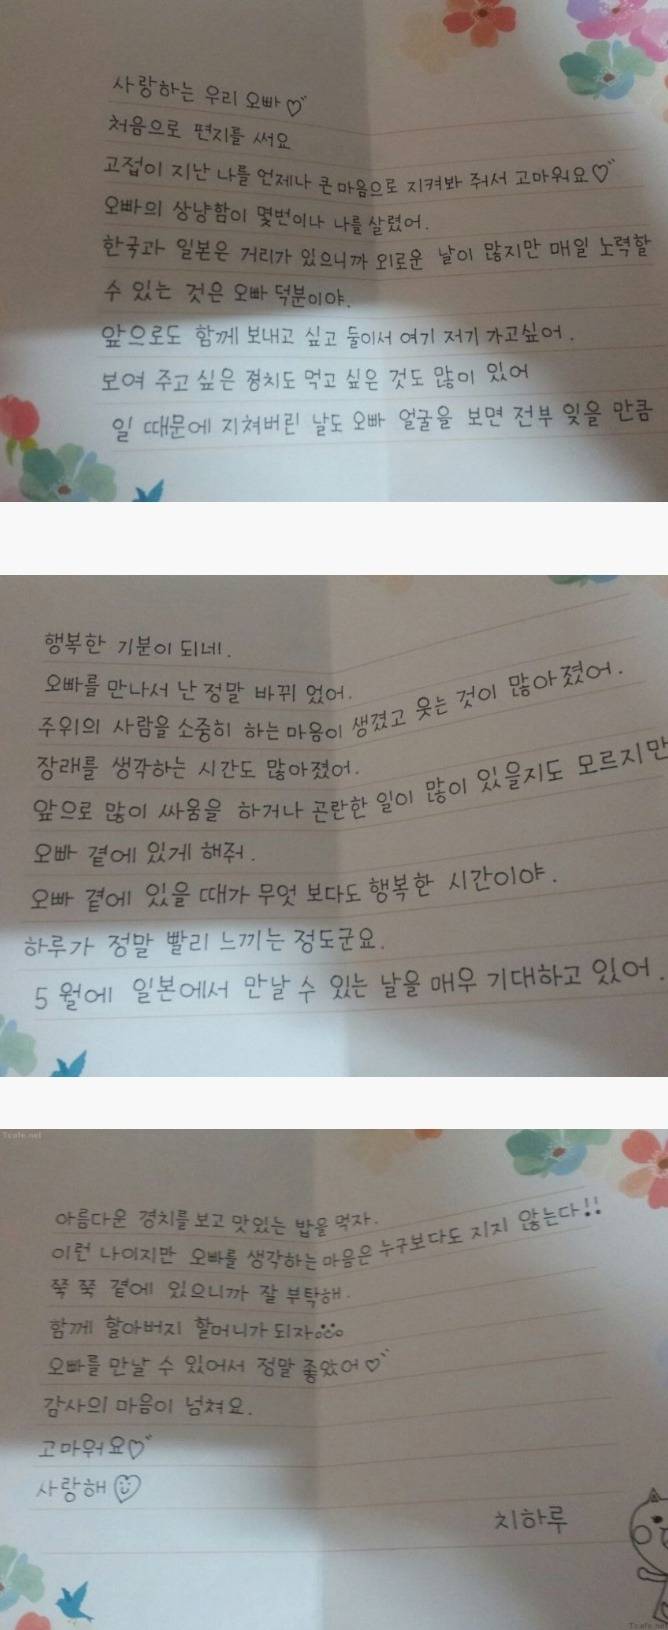 사랑하는 우리 오빠♡
처음으로 편지를 써요
고접이 지난 나를 언제나 큰마음으로 지켜봐 줘서 고마워요♡
오빠의 상냥함이 몇번이나 나를 살렸어.
한국과 일본은 거리가 있으니까 외로운 날이 많지만 매일 노력할
수 있는 것은 오빠 덕분이야.
앞으로도 함께 보내고 싶고 둘이서 여기 저기 가고싶어.
보여 주고 싶은 경치도 먹고 싶은 것도 많이 있어
일 때문에 지쳐버린 날도 오빠 얼굴을 보면 전부 잊을 만큼
행복한 기분이 되네.
오빠를 만나서 난 정말 바뀌 었어.
주위의 사람을 소중히 하는 마음이 생겼고 웃는 것이 많아졌어.
장래를 생각하는 시간도 많아졌어.
앞으로 많이 싸움을 하거나 곤란한 일이 많이 있을지도 모르지만
오빠 곁에 있게 해줘.
오빠 곁에 있을 때가 무엇 보다도 행복한 시간이야.
하루가 정말 빨리 느끼는 정도군요.
5월에 일본에서 만날 수 있는 날을 매우 기대하고 있어.
Tcafe.net
아름다운 경치를 보고 맛있는 밥을 먹자.
이런 나이지만 오빠를 생각하는 마음은 누구보다도 지지 않는다!!
쭉 쭉 곁에 있으니까 잘 부탁해.
함께 할아버지 할머니가 되자
오빠를 만날 수 있어서 정말 좋았어♡
감사의 마음이 넘쳐요.
고마워요♡
사랑해
치하루
Tcafe.net